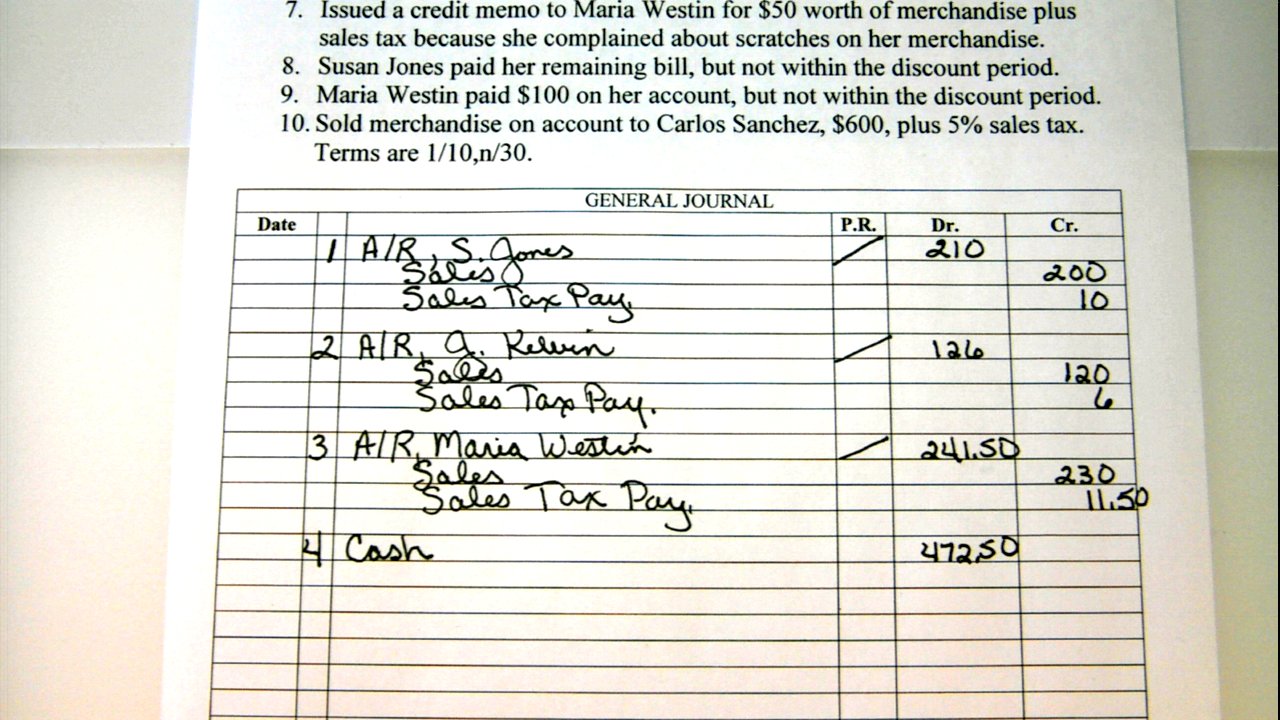 7. Issued a credit memo to Maria Westin for $50 worth of merchandise plus
sales tax because she complained about scratches on her merchandise.
8. Susan Jones paid her remaining bill, but not within the discount period.
9. Maria Westin paid $100 on her account, but not within the discount period.
10. Sold merchandise on account to Carlos Sanchez, $600, plus 5% sales tax.
Terms are 1/10,n/30.
GENERAL JOURNAL
Date P.R. Dr. Cr.
1 A/R, S. Jones 210
Sales 200
Sales Tax Pay. 10
2 A/R, J. Kelvin 126
Sales 120
Sales Tax Pay. 6
3 A/R, Maria Westin 241.50
Sales 230
Sales Tax Pay. 11.50
4 Cash 472.50